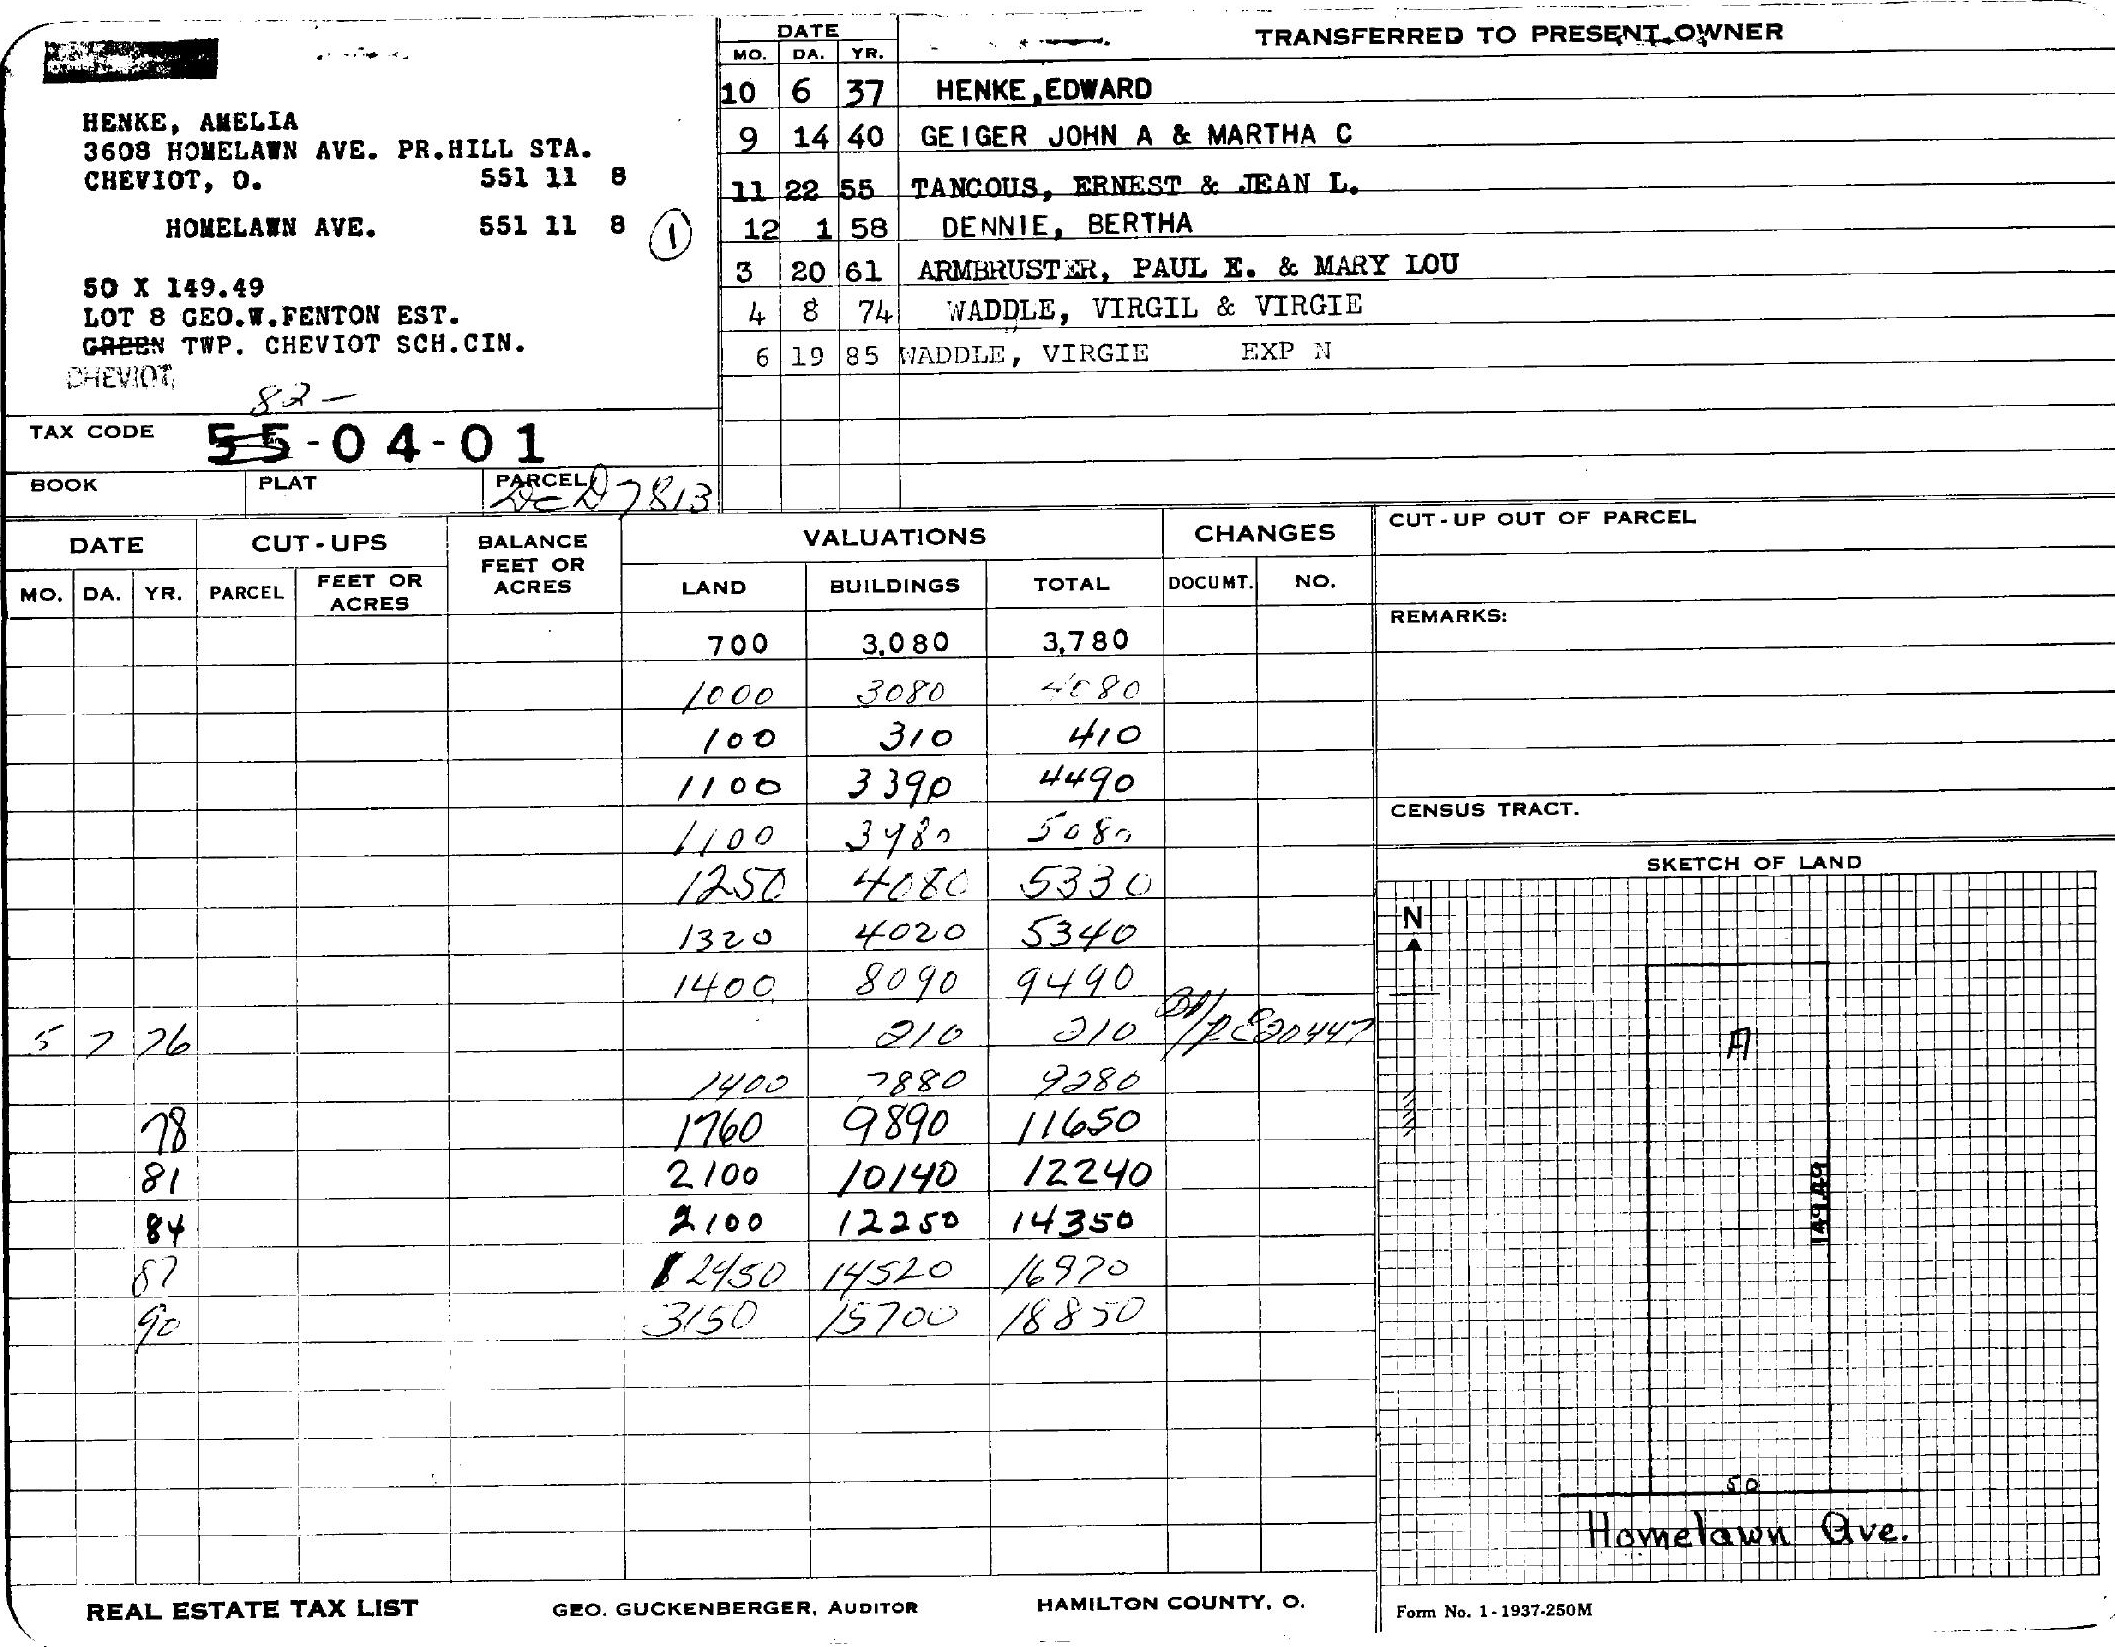 HENKE, AMELIA
3608 HOMELAWN AVE. PR.HILL STA.
CHEVIOT, O. 551 11 8
HOMELAWN AVE. 551 11 8 1
50 X 149.49
LOT 8 GEO.W.FENTON EST.
GREEN TWP. CHEVIOT SCH.CIN.
CHEVIOT
82-
TAX CODE 55-04-01
BOOK PLAT PARCEL
7813
DATE TRANSFERRED TO PRESENT OWNER
MO. DA. YR.
10 6 37 HENKE,EDWARD
9 14 40 GEIGER JOHN A & MARTHA C
11 22 55 TANCOUS, ERNEST & JEAN L.
12 1 58 DENNIE, BERTHA
3 20 61 ARMBRUSTER, PAUL E. & MARY LOU
4 8 74 WADDLE, VIRGIL & VIRGIE
6 19 85 WADDLE, VIRGIE EXP N
DATE CUT-UPS BALANCE FEET OR ACRES VALUATIONS CHANGES
MO. DA. YR. PARCEL FEET OR ACRES LAND BUILDINGS TOTAL DOCUMT. NO.
700 3,080 3,780
1000 3080 4080
100 310 410
1100 3390 4490
1100 3980 5080
1250 4080 5330
1320 4020 5340
1400 8090 9490
5 7 76 210 210 20447
1400 7880 9280
78 1760 9890 11650
81 2100 10140 12240
84 2100 12250 14350
87 2450 14520 16970
90 3150 15700 18850
CUT-UP OUT OF PARCEL
REMARKS:
CENSUS TRACT.
SKETCH OF LAND
N
A
149.49
50
Homelawn Ave.
REAL ESTATE TAX LIST GEO. GUCKENBERGER, AUDITOR HAMILTON COUNTY, O. Form No. 1-1937-250M